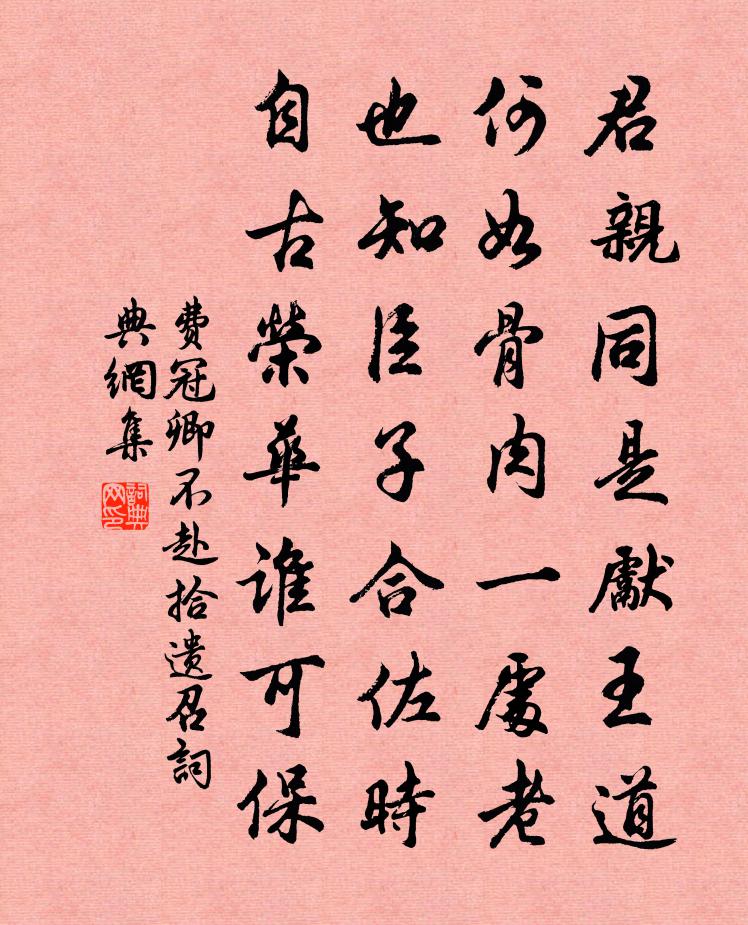 君親同是獻王道
何如骨肉一處老
也知臣子合佐時
自古榮華誰可保
費冠卿不赴拾遺召詞
典網集
詞典
网印